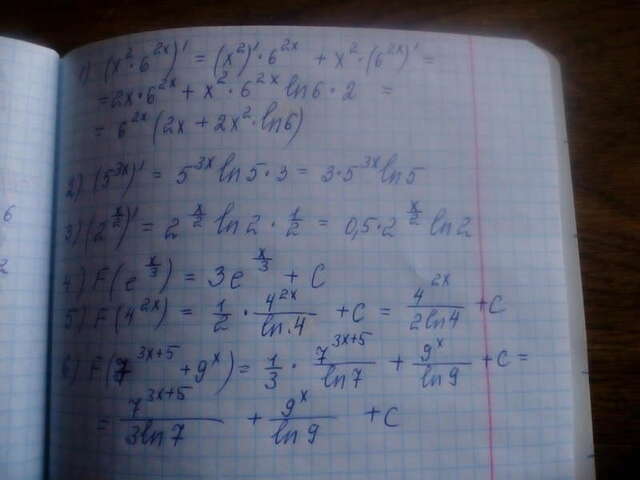 1) (x²·6²ˣ)' = (x²)'·6²ˣ + x²·(6²ˣ)' =
= 2x·6²ˣ + x²·6²ˣ ln6·2 =
= 6²ˣ(2x + 2x²·ln6)
2) (5³ˣ)' = 5³ˣ ln5·3 = 3·5³ˣ ln5
3) (2^(x/2))' = 2^(x/2) ln2·1/2 = 0,5·2^(x/2) ln2
4) F(e^(x/3)) = 3e^(x/3) + C
5) F(4²ˣ) = 1/2·4²ˣ/ln.4 + C = 4²ˣ/2ln4 + C
6) F(7^(3x+5) + 9ˣ) = 1/3·7^(3x+5)/ln7 + 9ˣ/ln9 + C =
= 7^(3x+5)/3ln7 + 9ˣ/ln9 + C
6
2